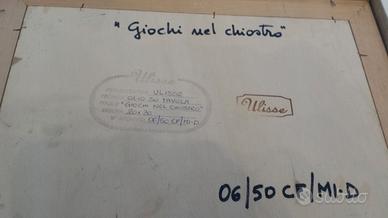 "Giochi nel chiostro"
Ulisse
ULISSE
OLIO SU TAVOLA
"GIOCHI NEL CHIOSTRO"
20x30
06/50 CF/MI-D
Ulisse
06/50 CF/MI-D
subito